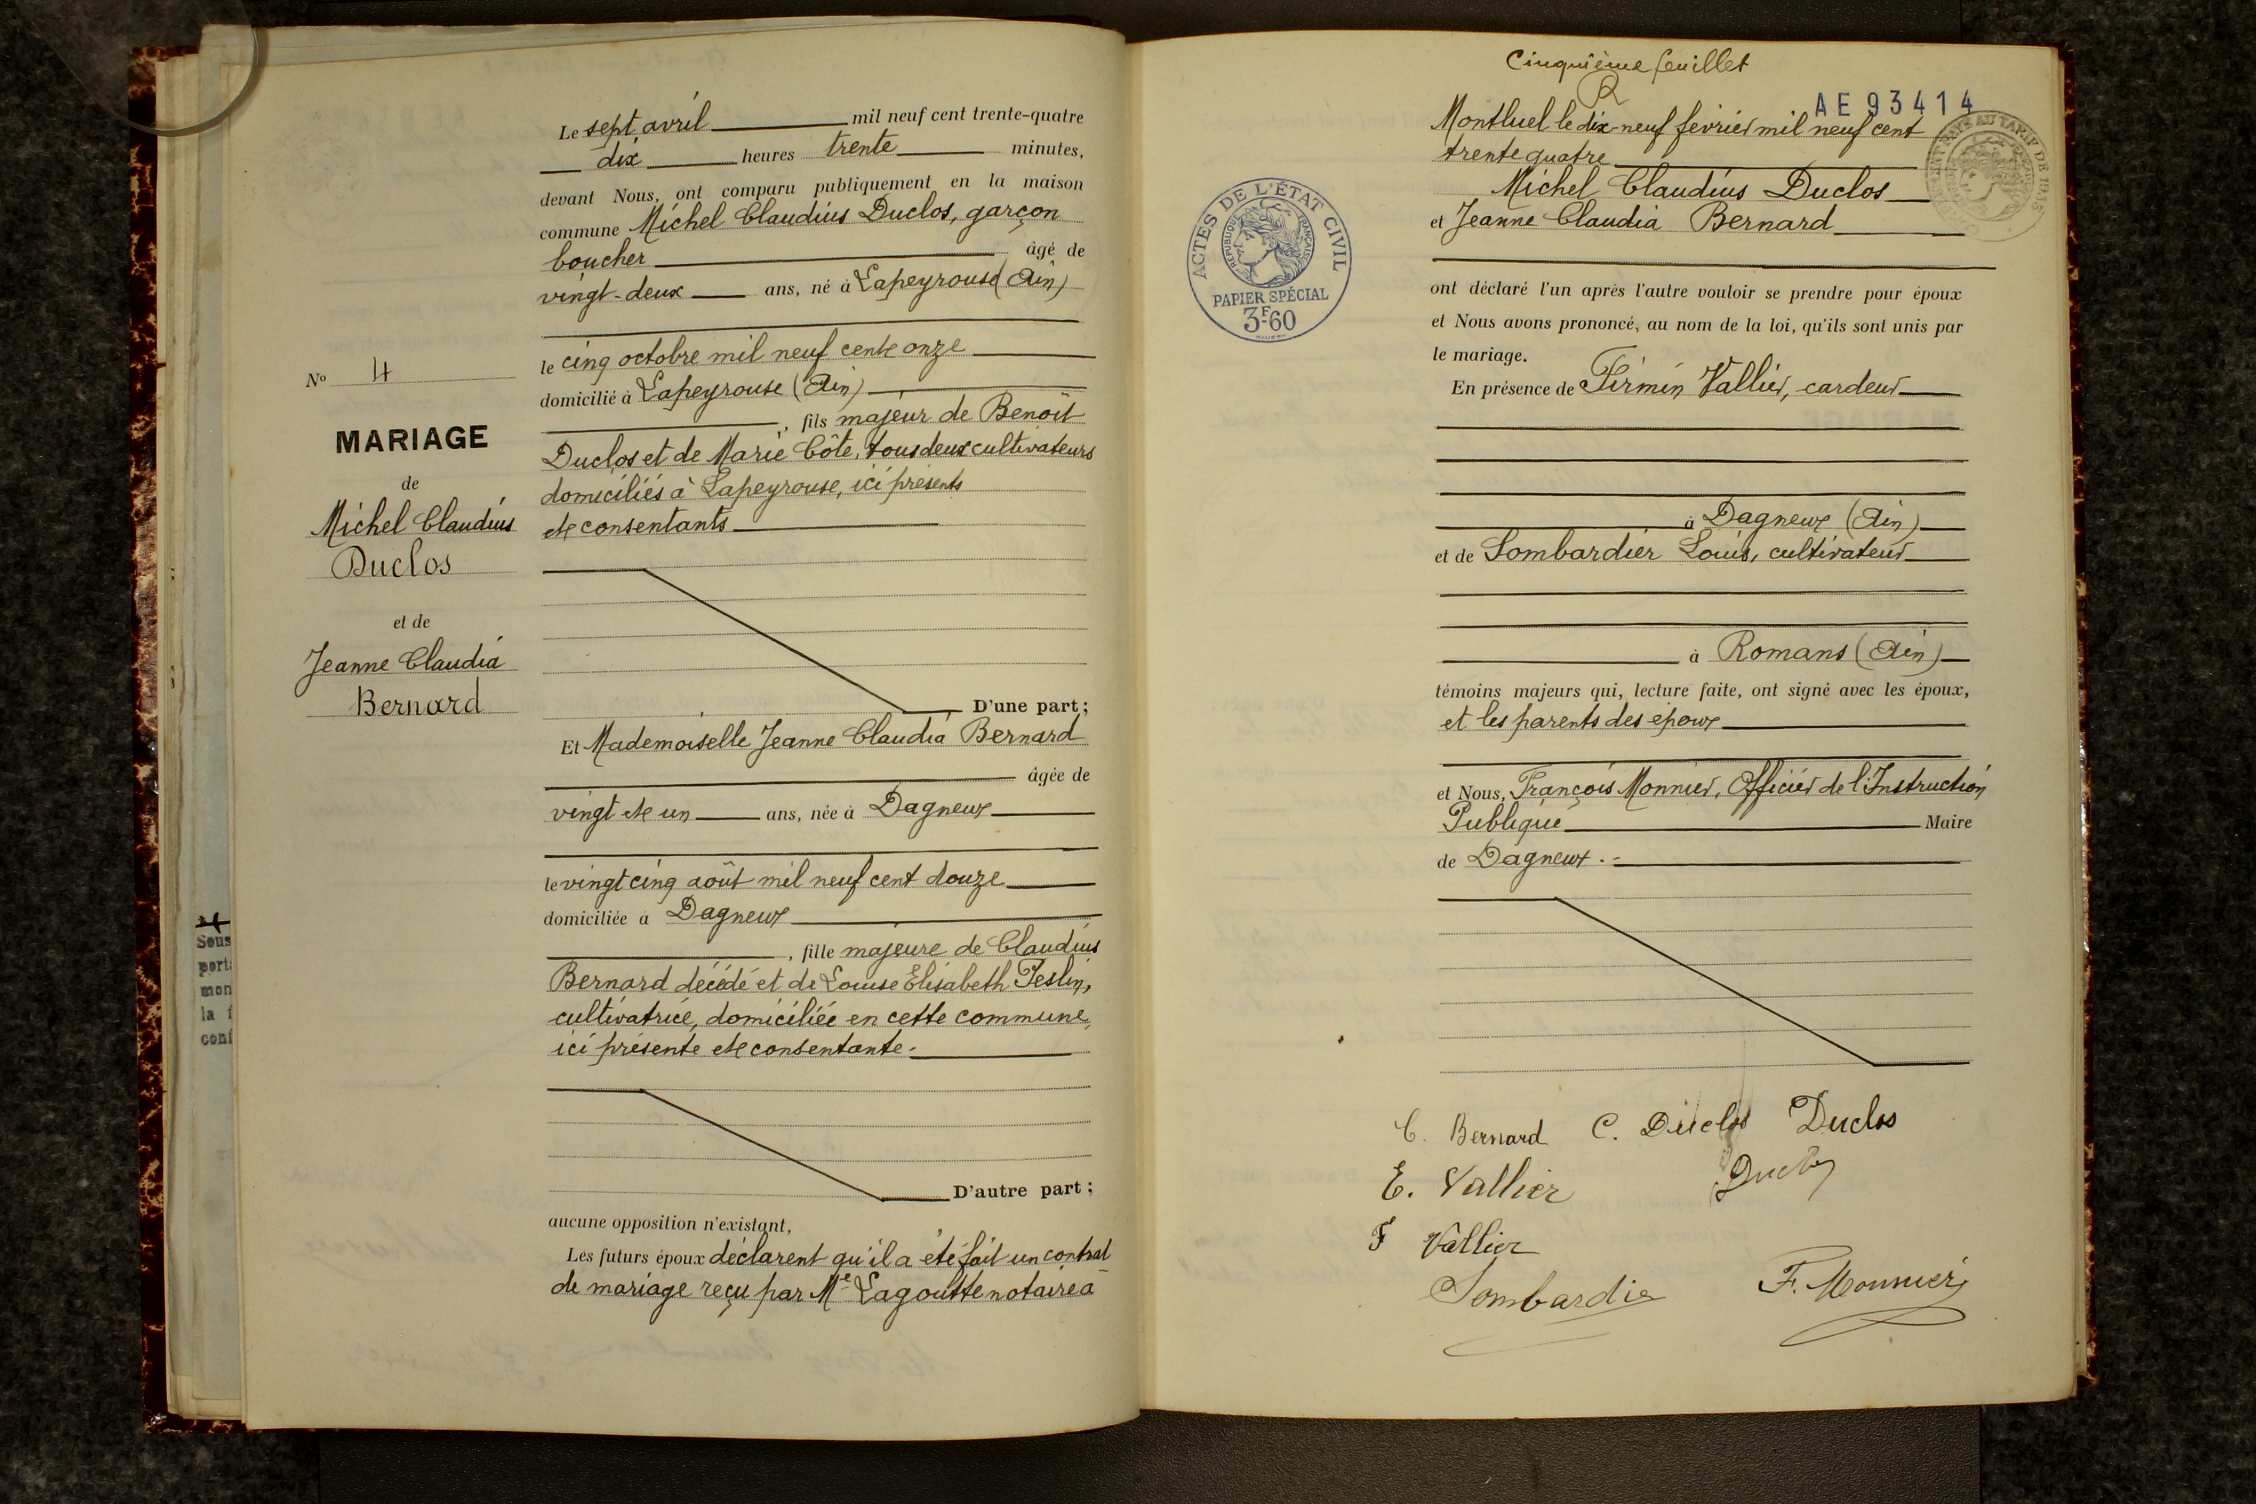 Le sept avril mil neuf cent trente-quatre
dix heures trente minutes,
devant Nous, ont comparu publiquement en la maison
commune Michel Claudius Duclos, garçon
boucher âgé de
vingt-deux ans, né à Lapeyrouse (Ain)
le cinq octobre mil neuf cent onze
domicilié à Lapeyrouse (Ain)
, fils majeur de Benoît
Duclos et de Marie Côte, tous deux cultivateurs
domiciliés à Lapeyrouse, ici présents
et consentants
D'une part;
Et Mademoiselle Jeanne Claudia Bernard
âgée de
vingt et un ans, née à Dagneux
le vingt cinq août mil neuf cent douze
domiciliée à Dagneux
, fille majeure de Claudius
Bernard décédé et de Louise Elisabeth Teslin,
cultivatrice, domiciliée en cette commune,
ici présente et consentante.
D'autre part;
aucune opposition n'existant,
Les futurs époux déclarent qu'il a été fait un contrat
de mariage reçu par Me Lagoutte notaire à
No 4
MARIAGE
de
Michel Claudius
Duclos
et de
Jeanne Claudia
Bernard
Sous
mon
la f
Cinquième feuillet
AE 93414
Montluel le dix-neuf février mil neuf cent
trente quatre
Michel Claudius Duclos
et Jeanne Claudia Bernard
ACTES DE L'ÉTAT CIVIL
RÉPUBLIQUE FRANÇAISE
PAPIER SPÉCIAL
3F60
ont déclaré l'un après l'autre vouloir se prendre pour époux
et Nous avons prononcé, au nom de la loi, qu'ils sont unis par
le mariage.
En présence de Firmin Vallier, cardeur
à Dagneux (Ain)
et de Lombardier Louis, cultivateur
à Romans (Ain)
témoins majeurs qui, lecture faite, ont signé avec les époux,
et les parents des époux
et Nous, François Monnier, Officier de l'Instruction
Publique Maire
de Dagneux.-
C. Bernard C. Duclos Duclos
E. Vallier Duclos
F Vallier
Lombardier F. Monnier